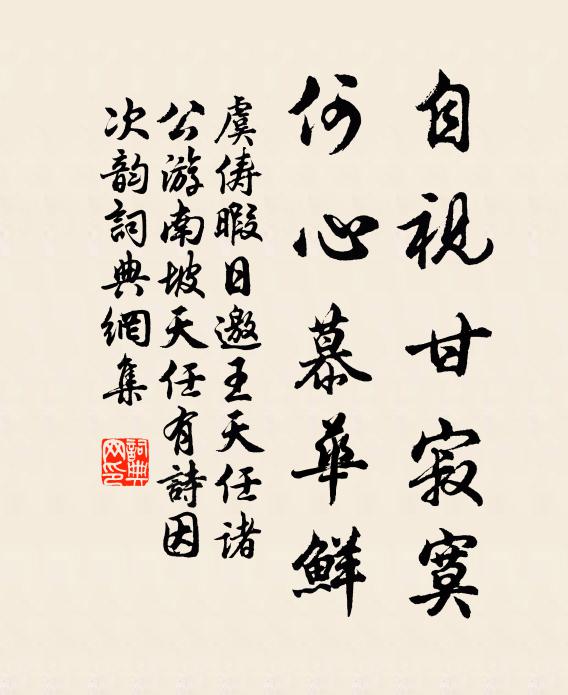 自視甘寂寞
何心慕華鮮
虞儔暇日邀王天任諸
公游南坡天任有詩因
次韵詞典網集
詞典網印